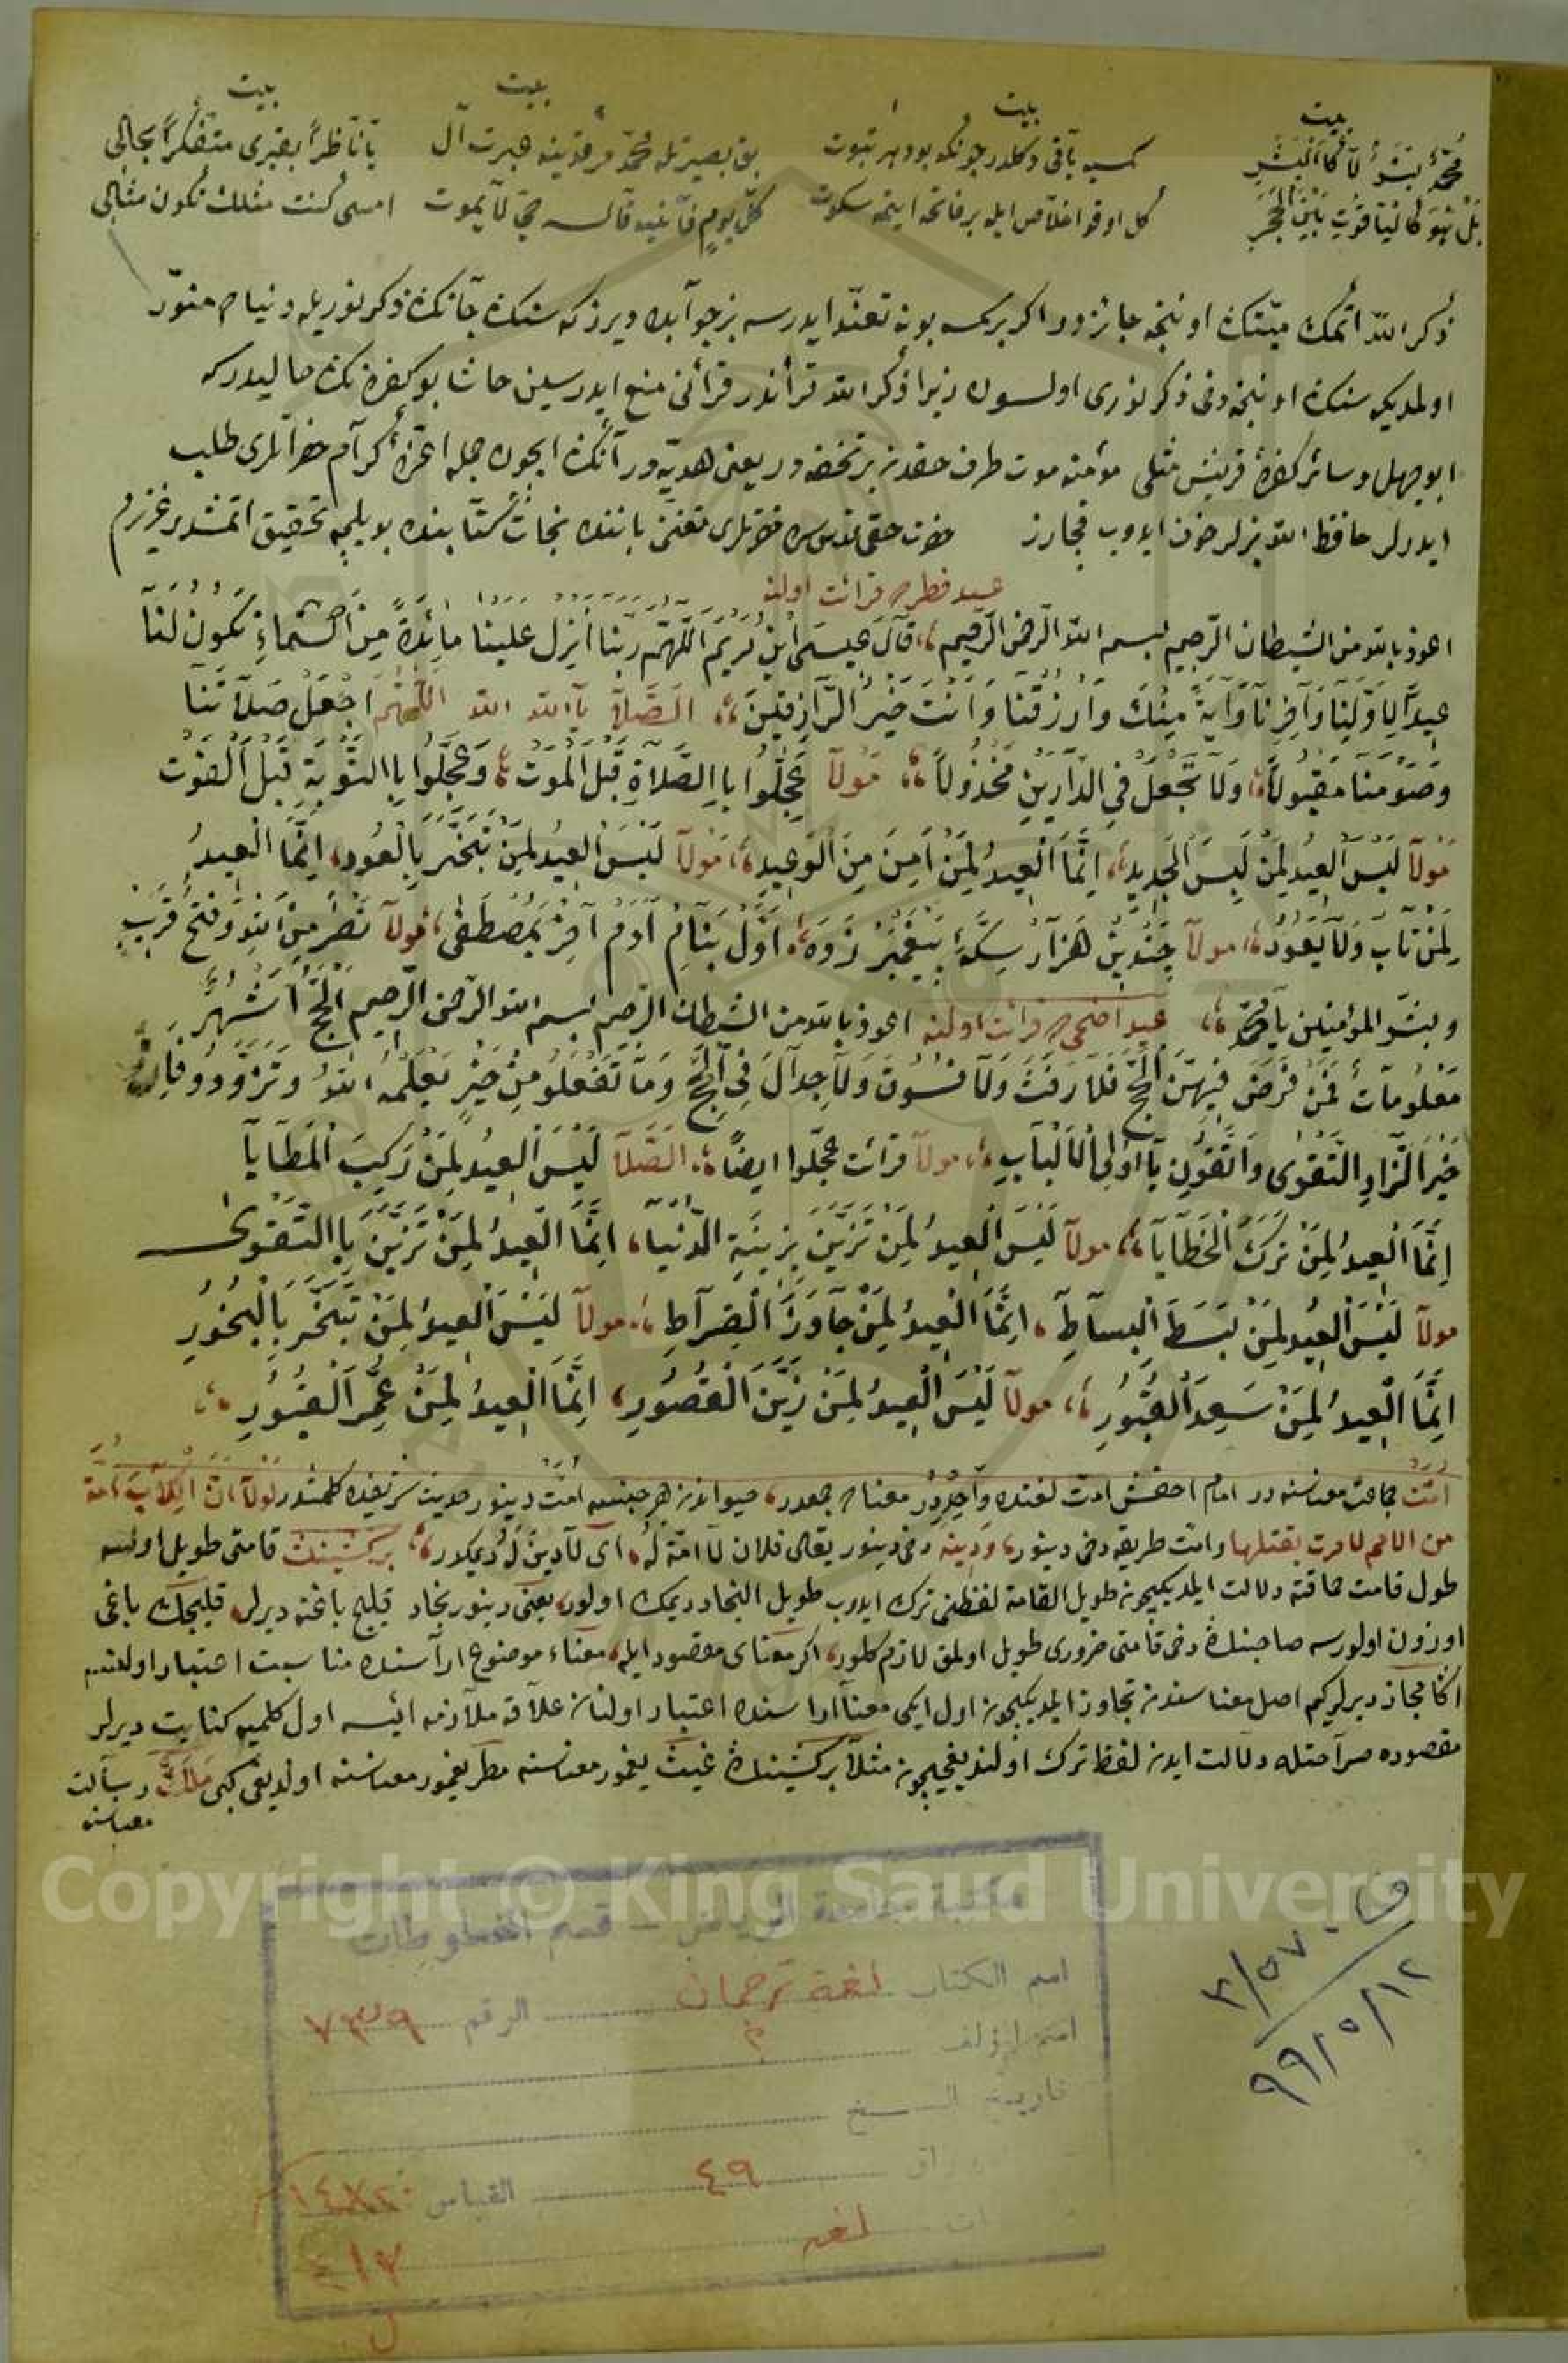 بيت
بيت
بيت
بيت
محمد بشر لا كالبشر
كسيه باقى دكلدر چونكه بو دهر ثبوت
بق بصيرتله محمد مرقدينه عبرت آل
يا ناظرا بقبرى متفكرا بحالى
بل هو كالياقوت بين الحجر
كل اوقو اخلاص ايله بر فاتحه ايتمه سكوت
كل يوم حى لا يموت
امسى كنت مثلك تكون مثالى
ذكر الله اتمك ميتك اوننجه جائزدر اكر بركسه بونه تعند ايدرسه بز جوابده ويرز كه سنك جانك ذكر نوريله دنيا منور
اولمديكه سنك اوننجه دخى ذكر نورى اولسون زيرا ذكر الله قرآندر قرآنى منع ايدرسين حاشا بو كفره نك حاليدر كه
ابو جهل وسائر كفرهٔ قريش مثلى مؤمنه موت طرف حقدن بر تحفه در يعنى هديه در آنك ايچون جمله اعزهٔ كرام حضراتلرى طلب
ايدرلر حافظ الله بزلر خوف ايدوب قچارز حضرت حقى قدس سره حضرتلرى نجات بنده بويلجه تحقيق اتمشدر عزيزم
عيد فطره قرائت اولنه
اعوذ بالله من الشيطان الرجيم بسم الله الرحمن الرحيم قال عيسى ابن مريم اللهم ربنا أنزل علينا مائدة من السماء تكون لنا
عيدا لاولنا وآخرنا وآية منك وارزقنا وانت خير الرازقين الصلا يا الله الله اللهم اجعل صلاتنا
وصومنا مقبولا ولا تجعل فى الدارين مخذولا مولا عجلوا باالصلاة قبل الموت وعجلوا باالتوبة قبل الفوت
مولا ليس العيد لمن لبس الجديد انما العيد لمن امن من الوعيد مولا ليس العيد لمن تبخر بالعود انما العيد
لمن تاب ولا يعود مولا چندين هزار سكه پيغمبر زده اول بنام آدم آخر بمصطفى مولا نصر من الله وفتح قريب
وبشر المؤمنين يا محمد عيد اضحى ه قرائت اولنه اعوذ بالله من الشيطان الرجيم بسم الله الرحمن الرحيم الحج اشهر
معلومات فمن فرض فيهن الحج فلا رفث ولا فسوق ولا جدال فى الحج وما تفعلو من خير يعلمه الله وتزودو فان
خير الزاد التقوى واتقون يا اولى الالباب مولا قرائت عجلوا ايضا الصلا ليس العيد لمن ركب المطايا
انما العيد لمن ترك الخطايا مولا ليس العيد لمن تزين بزينة الدنيا انما العيد لمن تزين باالتقوى
مولا ليس العيد لمن بسط البساط انما العيد لمن جاوز الصراط مولا ليس العيد لمن تبخر بالبخور
انما العيد لمن سعد القبور مولا ليس العيد لمن زين القصور انما العيد لمن عمر القبور
امت جماعت معناسنه در امام اخفش امت لفظده واحددر معناده جمعدر حيواندن هر جنسه امت دينور حديث شريفده كلمشدر لولا ان الكلاب امة
من الامم لامرت بقتلها وامت طريقه دخى دينور ودينه دخى دينور يقال فلان لا امة له اى لا دين له ديمكدر بر كشينك قامتى طويل اولسه
طول قامت دلالت ايلديكيچون طويل القامه لفظنى ترك ايدوب طويل النجاد ديمك اولور يعنى دينور نجاد قليج باغنه ديرلر قليجك باغى
اوزون اولورسه صاحبنك دخى قامتى ضرورى طويل اولمق لازم كلور اكر معناى مقصود ايله معناء موضوع اراسنده مناسبت اعتبار اولنسه
اكا مجاز ديرلركيم اصل معناسندن تجاوز ايلديكيچون اول ايكى معنا اراسنده اعتبار اولنان علاقه ملازمه ايسه اول كلميه كنايت ديرلر
مقصوده صراحتله دلالت ايدن لفظ ترك اولنديغيچون مثلا بر كشينك غيث يغمور معناسنه مطر يغمور معناسنه اولديغى كبى ملاك رسالت
معناسنه
مكتبة جامعة الرياض - قسم المخطوطات
اسم الكتاب لغة ترجمان الرقم ٧٣٣٩
اسم المؤلف ؟
تاريخ النسخ
اوراق ٤٩ القياس
لغه
ف ٥٧٠/٣
٩٩/٥/١٢
Copyright © King Saud University